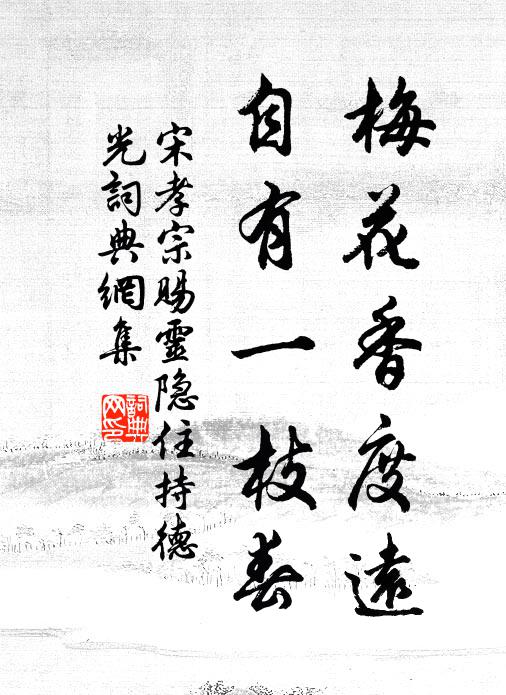 梅花香度遠
自有一枝春
宋孝宗賜靈隐住持德
光詞典網集
詞典网印